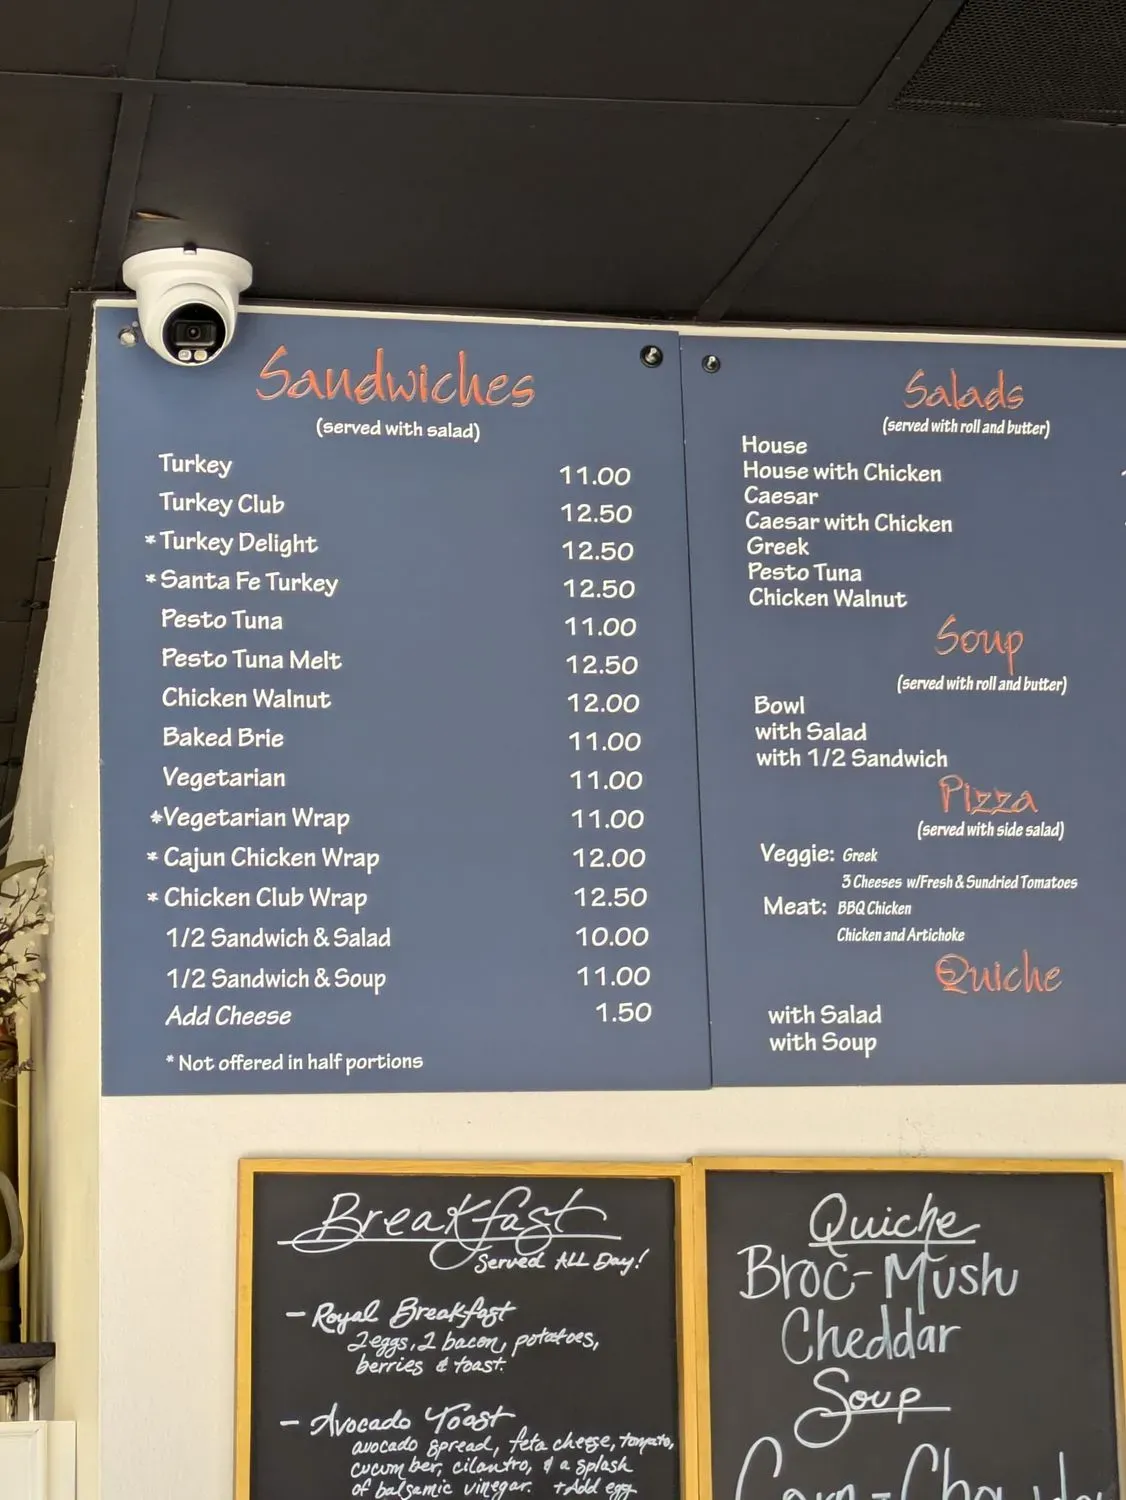 Sandwiches
(served with salad)
Turkey 11.00
Turkey Club 12.50
*Turkey Delight 12.50
*Santa Fe Turkey 12.50
Pesto Tuna 11.00
Pesto Tuna Melt 12.50
Chicken Walnut 12.00
Baked Brie 11.00
Vegetarian 11.00
*Vegetarian Wrap 11.00
*Cajun Chicken Wrap 12.00
*Chicken Club Wrap 12.50
1/2 Sandwich & Salad 10.00
1/2 Sandwich & Soup 11.00
Add Cheese 1.50
* Not offered in half portions
Salads
(served with roll and butter)
House
House with Chicken
Caesar
Caesar with Chicken
Greek
Pesto Tuna
Chicken Walnut
Soup
(served with roll and butter)
Bowl
with Salad
with 1/2 Sandwich
Pizza
(served with side salad)
Veggie: Greek
3 Cheeses w/Fresh & Sundried Tomatoes
Meat: BBQ Chicken
Chicken and Artichoke
Quiche
with Salad
with Soup
Breakfast
Served ALL Day!
- Royal Breakfast
2 eggs, 2 bacon, potatoes,
berries & toast.
- Avocado Toast
avocado spread, feta cheese, tomato,
cucumber, cilantro, & a splash
of balsamic vinegar. +Add egg
Quiche
Broc-Mush
Cheddar
Soup
Corn-Chowder